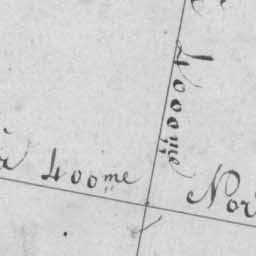 400me
4000me
Nor